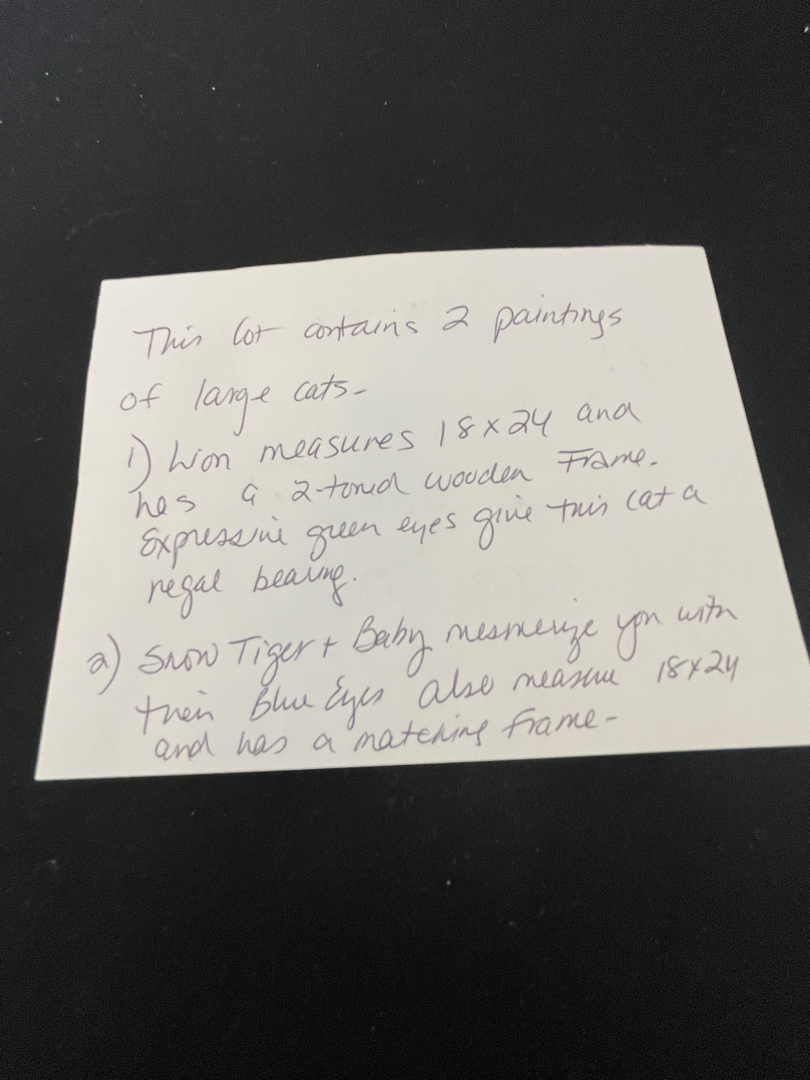 This lot contains 2 paintings
of large cats-
1) Lion measures 18x24 and
has a 2-toned wooden Frame.
Expressive green eyes give this cat a
regal bearing.
2) Snow Tiger + Baby mesmerize you with
their Blue Eyes also measure 18x24
and has a matching frame-